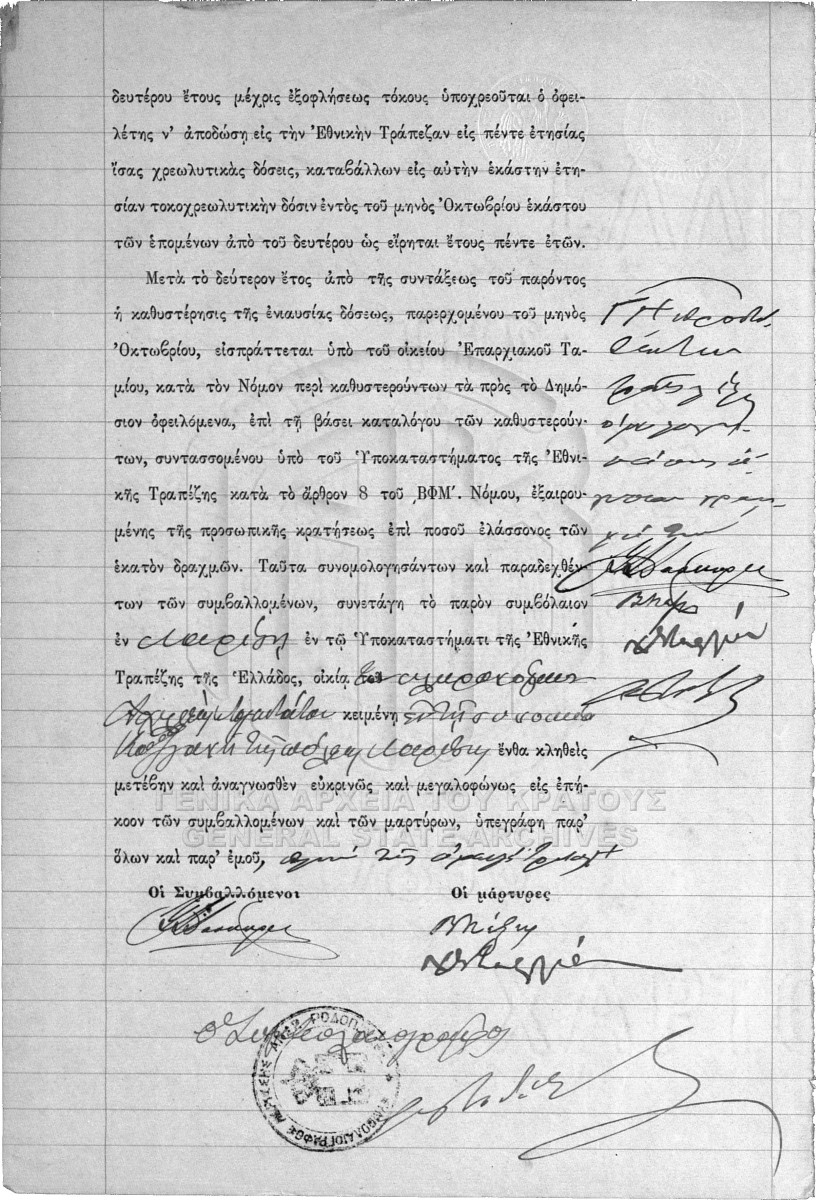 δευτέρου ἔτους μέχρις ἐξοφλήσεως τόκους ὑποχρεοῦται ὁ ὀφει-
λέτης ν' ἀποδώσῃ εἰς τὴν Ἐθνικὴν Τράπεζαν εἰς πέντε ἐτησίας
ἴσας χρεωλυτικὰς δόσεις, καταβάλλων εἰς αὐτὴν ἑκάστην ἐτη-
σίαν τοκοχρεωλυτικὴν δόσιν ἐντὸς τοῦ μηνὸς Ὀκτωβρίου ἑκάστου
τῶν ἑπομένων ἀπὸ τοῦ δευτέρου ὡς εἴρηται ἔτους πέντε ἐτῶν.
Μετὰ τὸ δεύτερον ἔτος ἀπὸ τῆς συντάξεως τοῦ παρόντος
ἡ καθυστέρησις τῆς ἐνιαυσίας δόσεως, παρερχομένου τοῦ μηνὸς
Ὀκτωβρίου, εἰσπράττεται ὑπὸ τοῦ οἰκείου Ἐπαρχιακοῦ Τα-
μίου, κατὰ τὸν Νόμον περὶ καθυστερούντων τὰ πρὸς τὸ Δημό-
σιον ὀφειλόμενα, ἐπὶ τῇ βάσει καταλόγου τῶν καθυστερούν-
των, συντασσομένου ὑπὸ τοῦ Ὑποκαταστήματος τῆς Ἐθνι-
κῆς Τραπέζης κατὰ τὸ ἄρθρον 8 τοῦ ͵ΒΦΜ'. Νόμου, ἐξαιρου-
μένης τῆς προσωπικῆς κρατήσεως ἐπὶ ποσοῦ ἐλάσσονος τῶν
ἑκατὸν δραχμῶν. Ταῦτα συνομολογησάντων καὶ παραδεχθέν-
των τῶν συμβαλλομένων, συνετάγη τὸ παρὸν συμβόλαιον
ἐν Λαρίσῃ ἐν τῷ Ὑποκαταστήματι τῆς Ἐθνικῆς
Τραπέζης τῆς Ἑλλάδος, οἰκίᾳ τῶν κληρονόμων
κειμένῃ ἐν τῇ συνοικίᾳ
τῆς πόλεως Λαρίσης ἔνθα κληθεὶς
μετέβην καὶ ἀναγνωσθὲν εὐκρινῶς καὶ μεγαλοφώνως εἰς ἐπή-
κοον τῶν συμβαλλομένων καὶ τῶν μαρτύρων, ὑπεγράφη παρ'
ὅλων καὶ παρ' ἐμοῦ,
Οἱ Συμβαλλόμενοι Οἱ μάρτυρες
ὁ Συμβολαιογράφος
ΓΕΝΙΚΑ ΑΡΧΕΙΑ ΤΟΥ ΚΡΑΤΟΥΣ
GENERAL STATE ARCHIVES